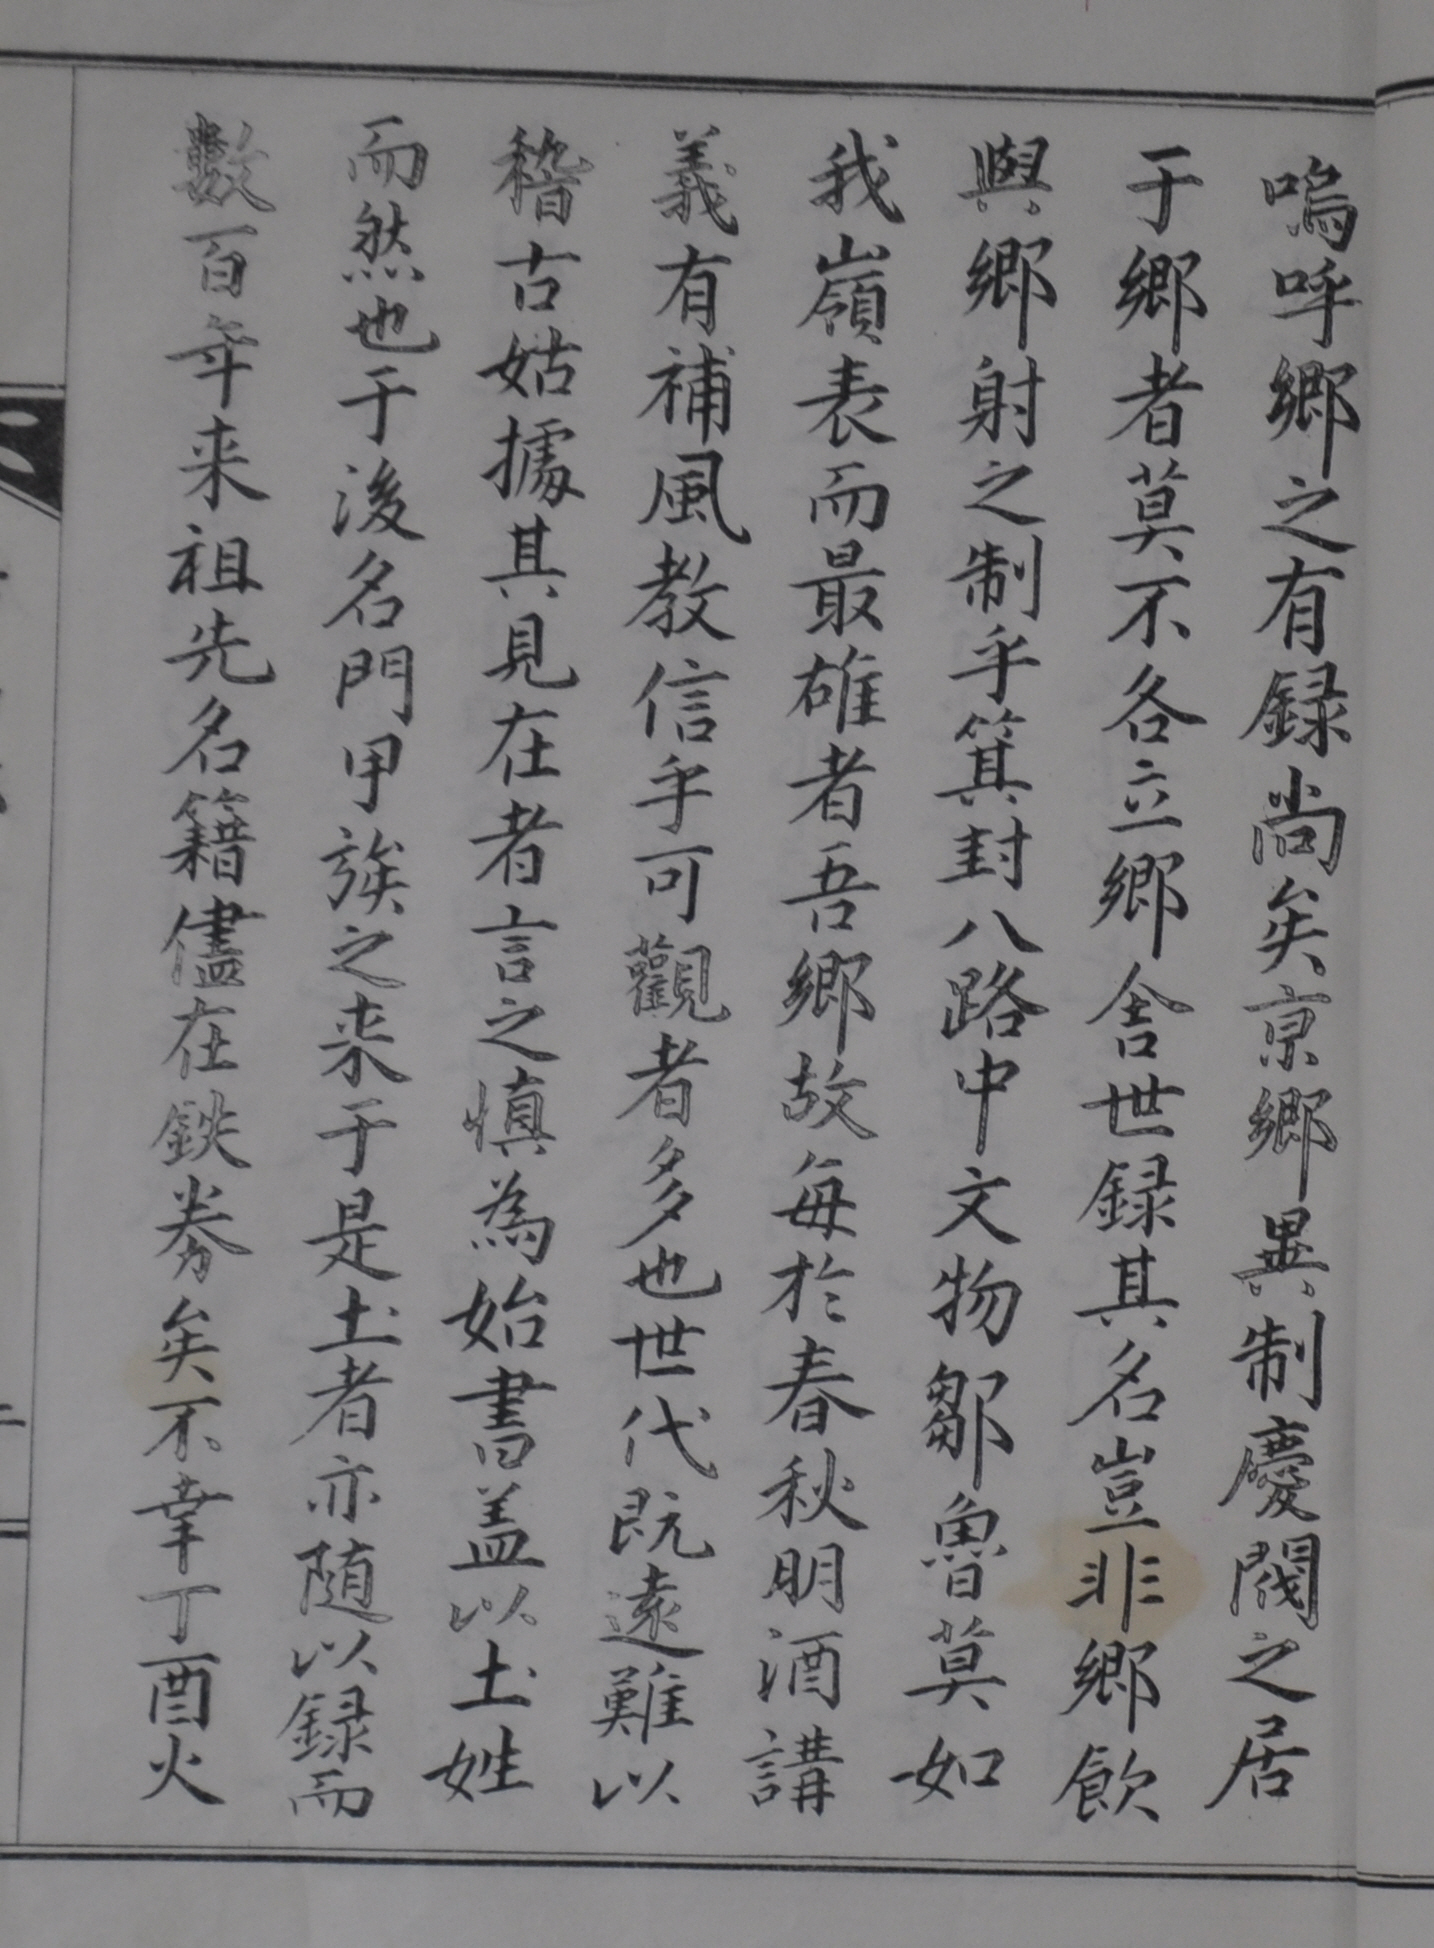 嗚呼鄉之有録尚矣京鄉異制慶閥之居
于鄉者莫不各立鄉舍世録其名豈非鄉飲
與鄉射之制乎箕封八路中文物鄒魯莫如
我嶺表而最雄者吾鄉故每於春秋明酒講
義有補風教信乎可觀者多也世代既遠難以
稽古姑據其見在者言之慎為始書盖以土姓
而然也于後名門甲族之来于是土者亦随以録而
數百年来祖先名籍儘在鉄券矣不幸丁酉火